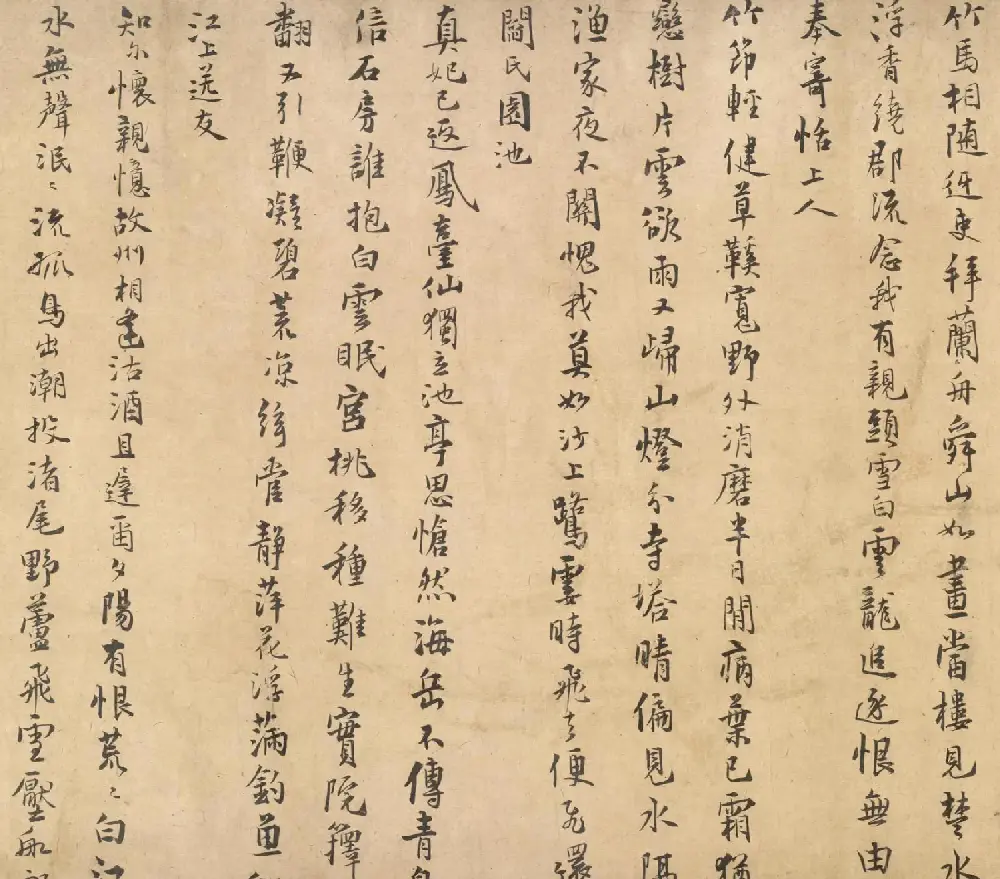 竹馬相随迓更拜蘭舟舜山如畫當樓見楚水
浮香繞郡流念我有親頭雪白雲龍追逐恨無由
奉寄恬上人
竹節輕健草鞋寬野外消磨半日閒病葉已霜猶
戀樹片雲欲雨又歸山燈分寺塔晴偏見水隔
漁家夜不關愧我莫如沙上鷺霎時飛去便飛還
閻氏園池
真妃已返鳳臺仙獨立池亭思愴然海岳不傳青
信石房誰抱白雲眠宮桃移種難生實院籜
翻又引鞭凝碧荒凉絃管靜萍花浮滿釣魚
江上送友
知尔懷親憶故州相逢沽酒且遲留夕陽有恨荒〻白江
水無聲泯〻流孤鳥出潮投渚尾野蘆飛雪壓船